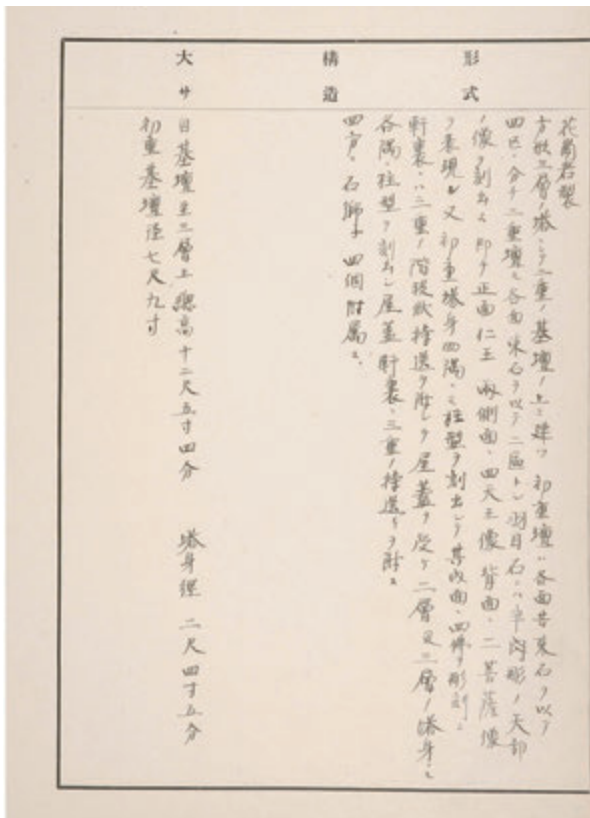 形式
花崗岩製
方形三層ノ塔ニシテ二重ノ基壇ノ上ニ建ツ 初重壇ハ各面共束石ヲ以テ
四区ニ分チ二重壇ハ各面束石ヲ以テ二區トシ羽目石ニハ半肉彫ノ天部
ノ像ヲ刻出ス即チ正面仁王 両側面ニ四天王像 背面ニ二菩薩像
ヲ表現ス 又初重塔身四隅ニハ柱型ヲ刻出シテ其四面ニ四佛ヲ彫刻ス
軒裏ニハ二重ノ階段状持送ヲ附シテ屋蓋ヲ受ケ 二層及三層ノ塔身ニ
各隅ニ柱型ヲ刻出シ屋蓋軒裏ニ三重ノ持送リヲ附ス
四方ニ石獅子四個附属ス
構造
大サ
自基壇至三層上總高十二尺五寸四分 塔身径 二尺四寸五分
初重基壇径七尺九寸